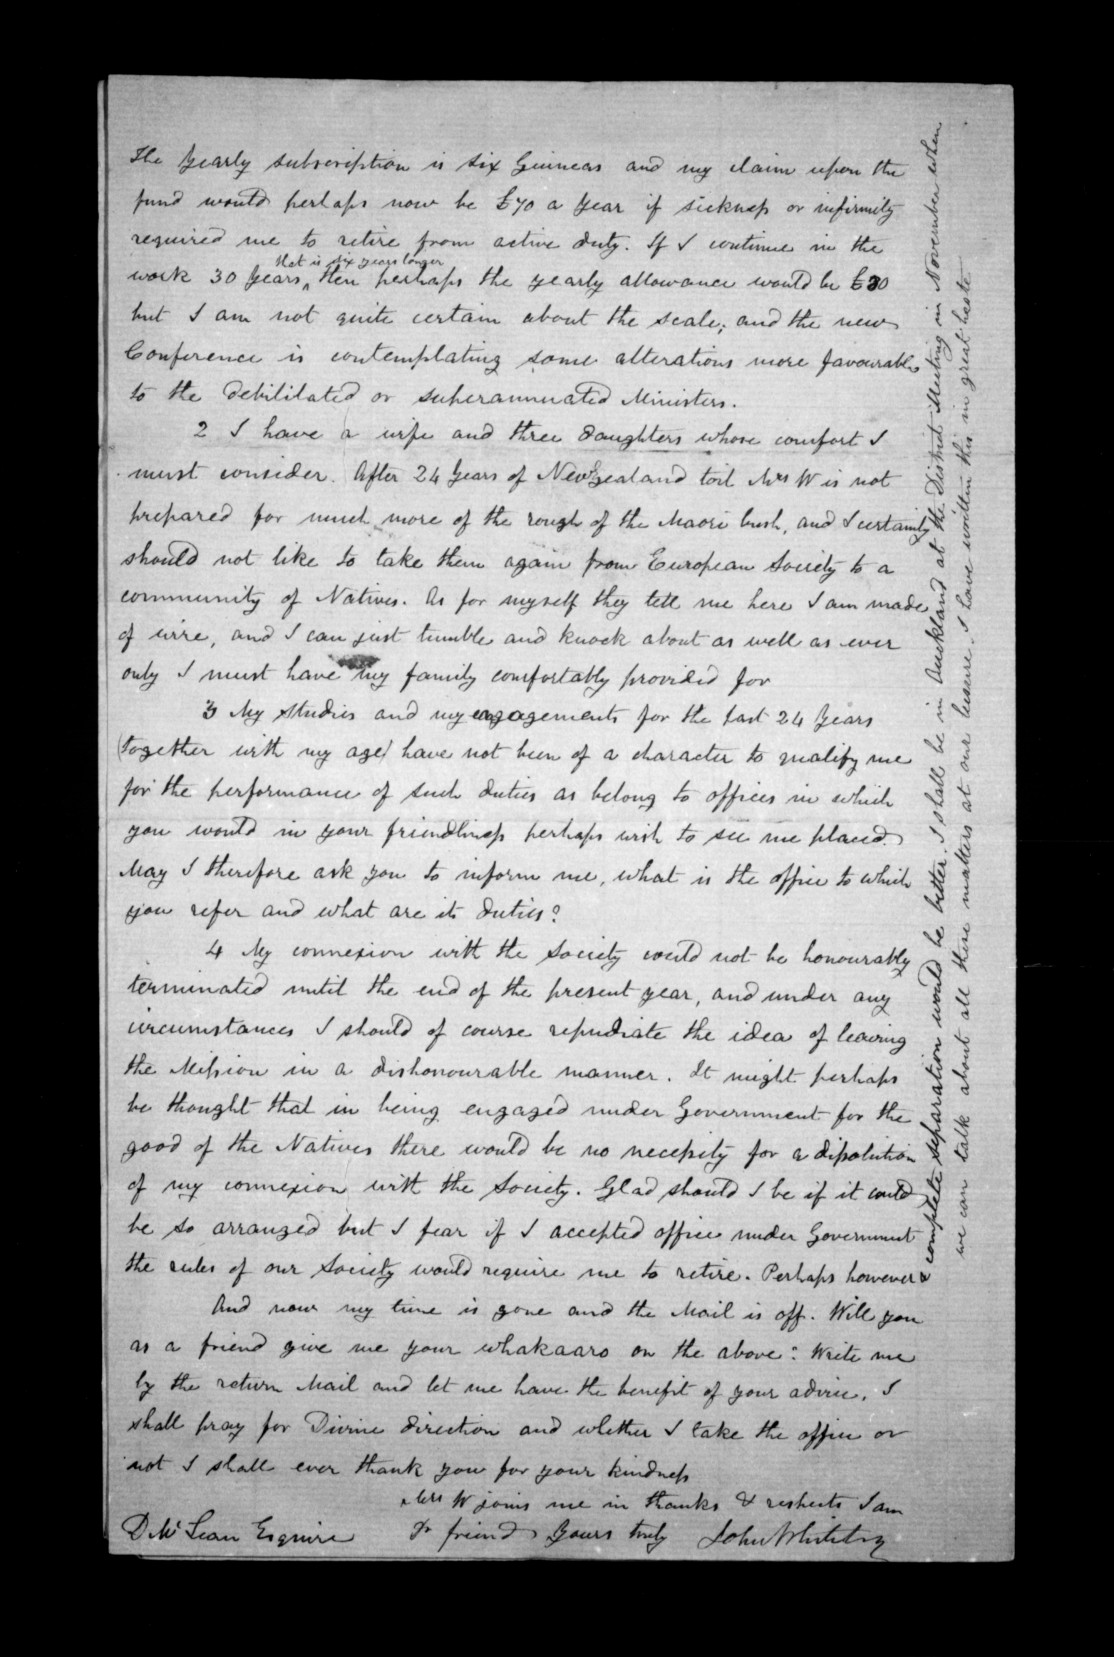 The Yearly subscription is six Guineas and my claim upon the
fund would perhaps now be £70 a Year if sickness or infirmity
required me to retire from active duty. If I continue in the
that is six years longer
work 30 Years, then perhaps the yearly allowance would be £80
but I am not quite certain about the scale; and the new
Conference is contemplating some alterations more favourable
to the debilitated or superannuated Ministers.
2 I have a wife and three daughters whose comfort I
must consider. After 24 Years of New Zealand toil Mrs W is not
prepared for much more of the rough of the Maori bush, and I certainly
should not like to take them again from European Society to a
community of Natives. As for myself they tell me here I am made
of wire, and I can just tumble and knock about as well as ever
only I must have my family comfortably provided for
3 My studies and my engagements for the last 24 Years
(together with my age) have not been of a character to qualify me
for the performance of such duties as belong to offices in which
you would in your friendliness perhaps wish to see me placed.
May I therefore ask you to inform me, what is the office to which
you refer and what are its duties?
4 My connexion with the Society could not be honourably
terminated until the end of the present year, and under any
circumstances I should of course repudiate the idea of leaving
the Mission in a dishonourable manner. It might perhaps
be thought that in being engaged under Government for the
good of the Natives there would be no necessity for a dissolution
of my connexion with the Society. Glad should I be if it could
be so arranged but I fear if I accepted office under Government
the rules of our Society would require me to retire. Perhaps however a
complete separation would be better. I shall be in Auckland at the District Meeting in November when
we can talk about all these matters at our leisure. I have written this in great haste
And now my time is gone and the Mail is off. Will you
as a friend give me your whakaaro on the above: Write me
by the return Mail and let me have the benefit of your advice. I
shall pray for Divine direction and whether I take the office or
not I shall ever thank you for your kindness
Mrs W joins me in thanks & respects I am
Dr friend Yours truly John Whiteley
D McLean Esquire